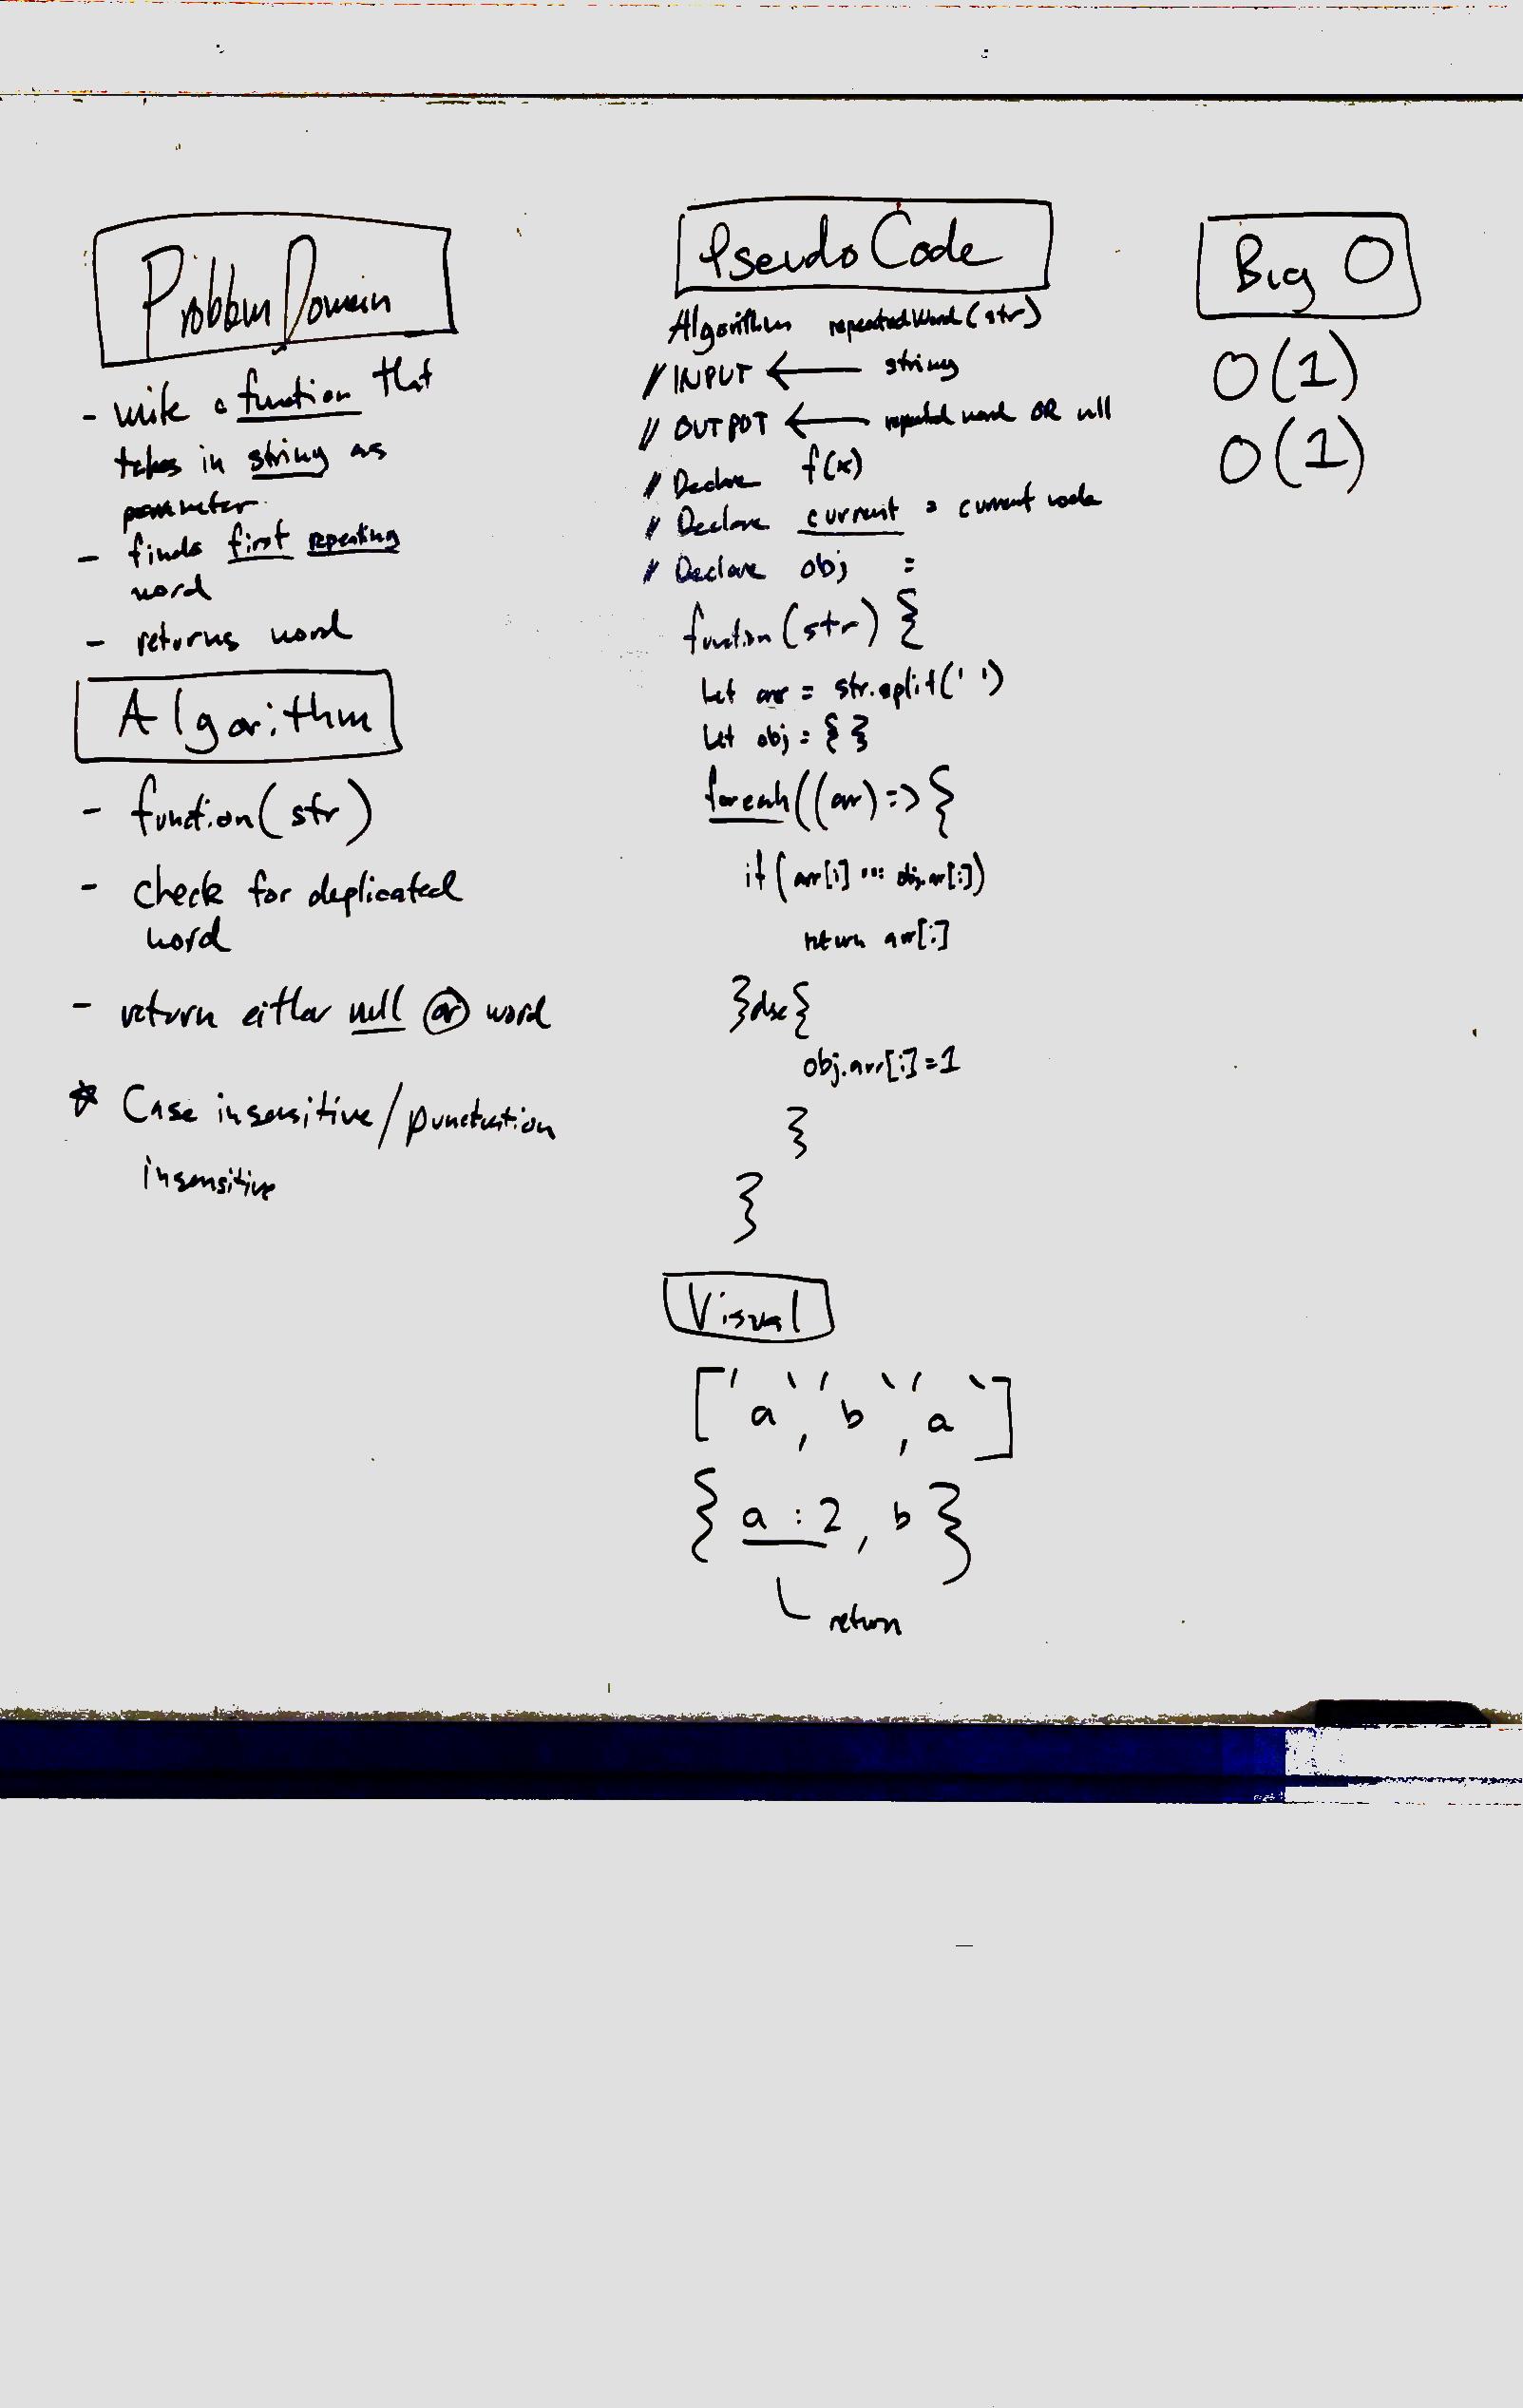 Problem Domain
- write a function that
takes in string as
parameter
- finds first repeating
word
- returns word
Algorithm
- function(str)
- check for duplicated
word
- return either null or word
* Case insensitive/punctuation
insensitive
Pseudo Code
Algorithm repeatedWord(str)
// INPUT ← string
// OUTPUT ← repeated word OR null
// Declare f(x)
// Declare current = current node
// Declare obj =
function(str) {
Let arr = str.split(' ')
Let obj = { }
foreach((arr) => {
if (arr[i] === obj.arr[i])
return arr[i]
}else{
obj.arr[i]=1
}
}
Visual
['a', 'b', 'a']
{ a : 2, b }
return
Big O
O(1)
O(1)